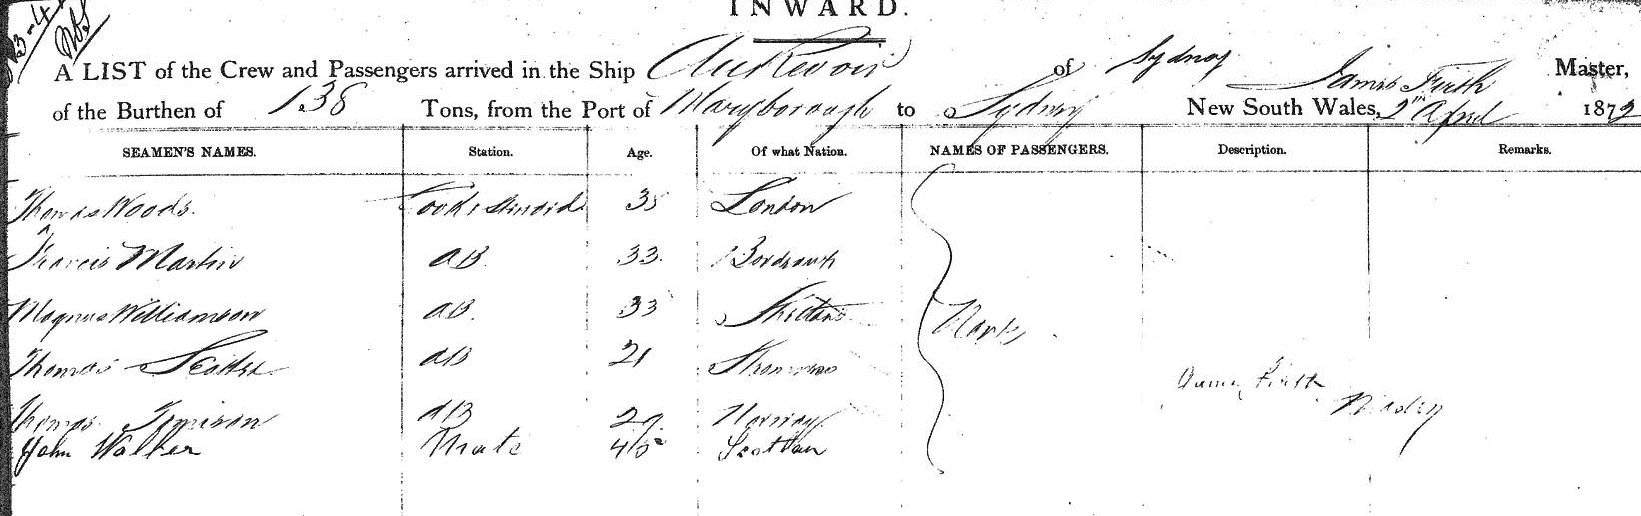 INWARD.
A LIST of the Crew and Passengers arrived in the Ship Au Revoir of Sydney James Firth Master,
of the Burthen of 138 Tons, from the Port of Maryborough to Sydney New South Wales, 2nd April 1872
SEAMEN'S NAMES. Station. Age. Of what Nation. NAMES OF PASSENGERS. Description. Remarks.
Thomas Woods. Cook & Steward 35 London
Francis Martin AB 33 Bordeaux
Magnus Williamson AB. 33 Shetland
Thomas AB 21
Thomas AB 29 Norway
John Walker Mate 45 Scotlan
James Firth